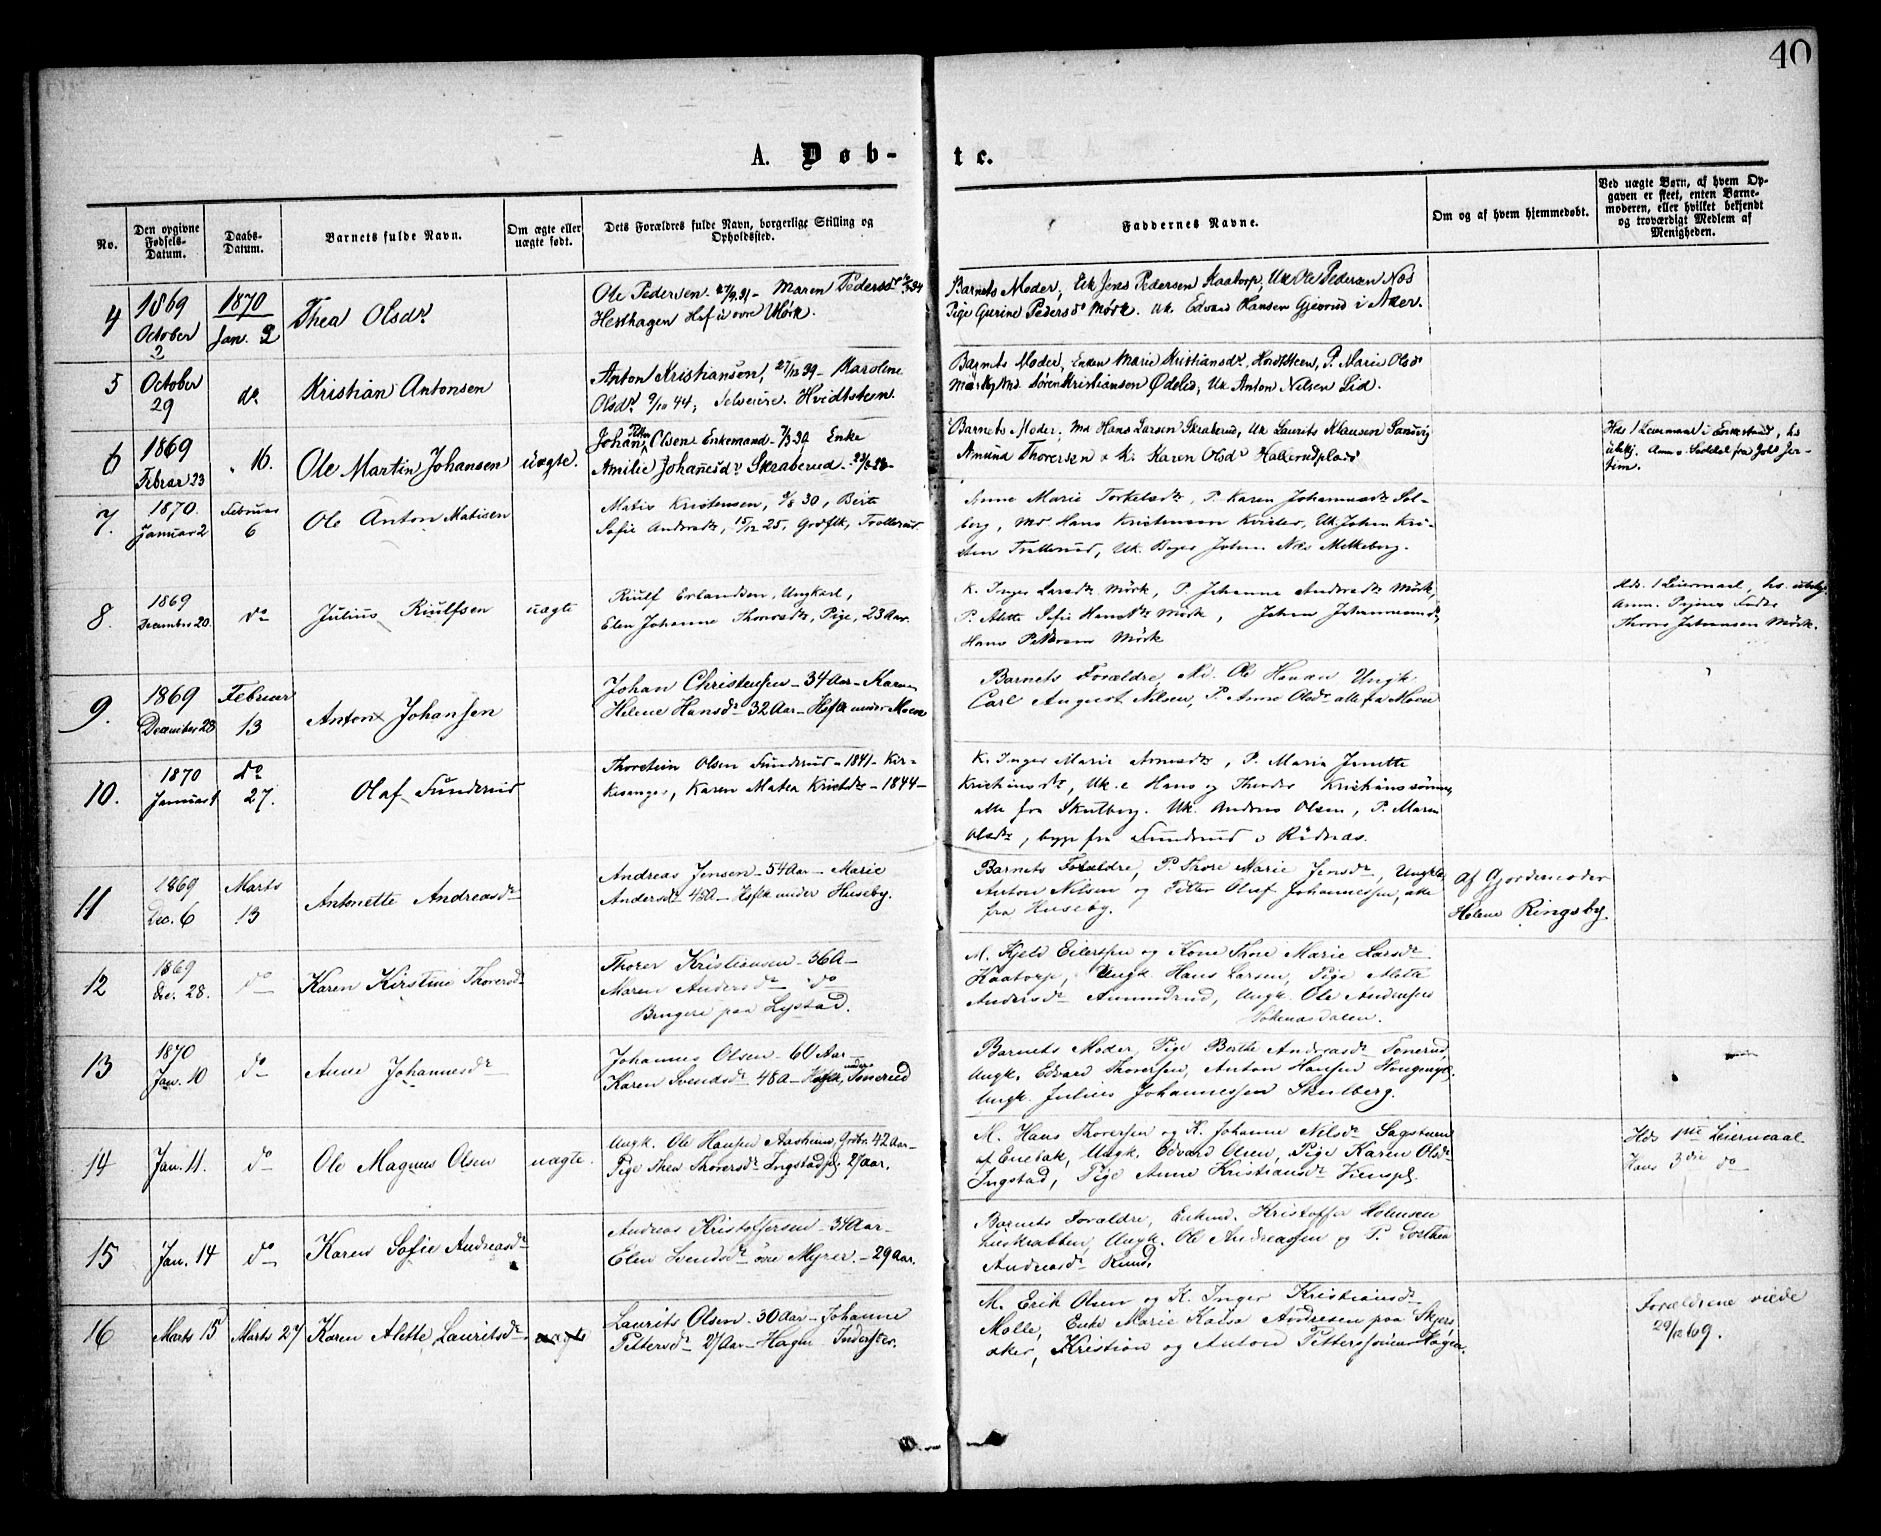 40
A. Døb-
te.
No.
Den opgivne Fødsels-Datum.
Daabs-Datum.
Barnets fulde Navn.
Om ægte eller uægte født.
Dets Forældres fulde Navn, borgerlige Stilling og Opholdssted.
Faddernes Navne.
Om og af hvem hjemmedøbt.
Ved uægte Børn, af hvem Opgaven er skeet, enten Barnemoderen, eller hvilket bekjendt og troværdigt Medlem af Menigheden.
4
1869 October 2
1870 Jan. 2
Thea Olsdr
Ole Pedersen 27/9 31 - Maren Pedersdr
Hesthagen Hsf u øvre Mørk.
Barnets Moder, Uk Jens Pedersen Kaatorp, Uk Ole Pedersen Næs
Pige Gurine Pedersdr Mørk. Uk. Edvard Hansen Gjevrud i Aker.
5
October 29
do
Kristian Antonsen
Anton Kristiansen, 27/12 39 - Karoline
Olsdr 9/10 44; Selveiere. Hvidtsteen.
Barnets Moder, Enken Marie Kristiansdr, Hvidtsteen, P. Marie Olsdr
Mørk, Md. Søren Kristiansen Ødelid, Uk Anton Nilsen Lid.
6
1869 Februar 23
" 16.
Ole Martin Johansen
uægte.
Johan Petter Olsen Enkemand - 7/3 30 Enke
Amilie Johanesdr Skraberud - 23/2 28 -
Barnets Moder; Md Hans Larsen Skraberud, Uk Laurits Klausen Sandvig
Amund Thoresen & K. Karen Olsdr Hallerudplads
Hds 1 Leiermaal i Enkestand, hs
ubekj.
7.
1870. Januar 2
Februar 6
Ole Anton Matisen
Matis Kristensen, 9/8 30, Berte
Sofie Andreasdr, 15/12 25, Grdflk, Trollerud.
Anne Marie Torkelsdr, P. Karen Johannesdr Sol-
berg, Md Hans Kristensen Kvister, Uk. Johan Kri-
sten Trollerud, Uk. Beyer Johan Næs Melkeberg.
8.
1869 December 20
do
Julius Riulfsen
uægte
Riulf Erlandsen, Ungkarl,
Elen Johanne Thoresdr, Pige, 23 Aar.
K. Inger Larsdr Mørk, P. Johanne Andreasdr Mørk,
P. Alette Sofie Hansdr Mørk, Johan Johannesen do,
Hans Pettersen Mørk
Hds. 1 Leiermaal, hs. ubekj.
Anm. Pigens Fader
Thore Johansen Mørk.
9.
1869 December 28
Februar 13
Anton Johansen
Johan Christensen - 34 Aar - Karen
Helene Hansdr 32 Aar - Hsflk under Moen
Barnets Forældre, Md. Ole Hansen Ungk.
Carl August Nilsen, P. Anne Olsdr alle fra Moen
10.
1870 Januar 1
do 27.
Olaf Sunderud
Thorstein Olsen Sunderud - 1841 - Kir-
kesanger, Karen Matea Kristdr - 1844 -
K. Inger Marie Arnesdr, P. Maria Jenette
Kristiansdr, Uk.e Hans og Theodor Kristianssønner,
alle fra Skulberg. Uk. Anders Olsen, P. Maren
Olsdr, begge fra Sundrud i Rødnæs.
11
1869 Dec. 6
Marts 13
Antonette Andreasdr
Andreas Jensen - 54 Aar - Marie
Andersdr 45 A - Hsflk under Huseby.
Barnets Forældre, P. Thore Marie Jensdr, Ungk.
Anton Nilsen og Petter Oluf Johannessen, alle
fra Huseby.
Af Gjordemoder
Helene Ringsby.
12
1869 Dec. 28.
do
Karen Kirstine Thoresdr
Thorer Kristiansen - 36 A -
Maren Andersdr do
Brugere paa Lystad.
M. Kjeld Eilertsen og Kone Thore Marie Larsdr
Kaatorp, Ungk. Hans Larsen, Pige Alette
Andersdr Amundrud, Ungk. Ole Andersen
13
1870 Jan. 10
do
Anne Johannesdr
Johannes Olsen - 60 Aar -
Karen Svendsdr 48 A - Hsflk under Tonerud
Barnets Moder, Pige Berthe Andreasdr Tonerud,
Ungk. Edvard Thoresen, Anton Hansen
Ungk. Julius Johannessen Skulberg.
14
Jan. 11.
do
Ole Magnus Olsen
uægte.
Ungk. Ole Hansen Aasheim, Grdbr. 42 Aar -
Pige Thea Thoresdr Ingstadpl. 27 Aar.
M. Hans Thoresen og K. Johanne Nilsdr Sagstuen
af Enebak, Ungk. Edvard Olsen, Pige Karen Olsdr
Ingstad, Pige Anne Kristiansdr Vienspl.
Hds 1ste Leiermaal -
Hans 3die do
15
Jan. 14
do
Karen Sofie Andreasdr
Andreas Kristoffersen - 34 Aar -
Elen Svendsdr øvre Myrer. - 29 Aar.
Barnets Forældre, Enkmd. Kristoffer Holmsen
Ungk. Ole Andreassen og P. Dorthea
Andreasdr Rund.
16
Marts 15
Marts 27
Karen Alette Lauritsdr
uægte
Laurits Olsen - 30 Aar - Johanne
Pettersdr 27 Aar - Hagen Inderster.
M. Erik Olsen og K. Inger Kristiansdr
Molle, Enke Marie Kaisa Andresen paa Skjers-
aker, Kristian og Anton Petterssønner Hagen.
Forældrene viede
29/12 69.